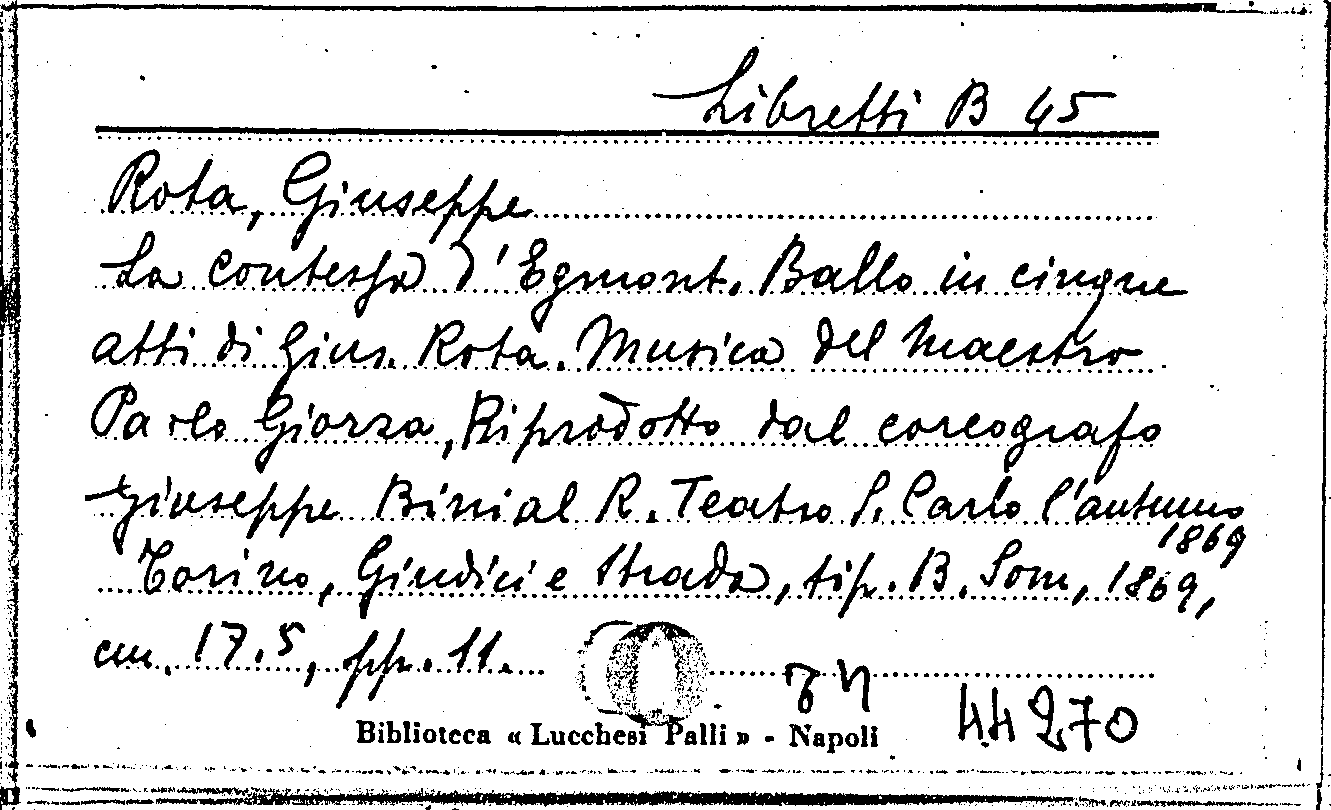 Libretti B 45
Rota, Giuseppe
La contessa d'Egmont. Ballo in cinque
atti di Gius. Rota. Musica del maestro
Paolo Giorza, Riprodotto dal coreografo
Giuseppe Bini al R. Teatro S. Carlo l'autunno
1869
Torino, Giudici e Strada, tip. B. Som, 1869,
cm. 17.5, pp. 11.
44270
Biblioteca « Lucchesi Palli » - Napoli